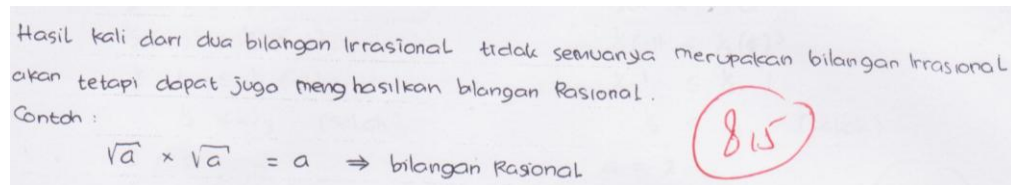 Hasil kali dari dua bilangan Irrasional tidak semuanya merupakan bilangan Irrasional
akan tetapi dapat juga menghasilkan blangan Rasional.
Contoh :
√a × √a = a ⇒ bilangan Rasional
8,5